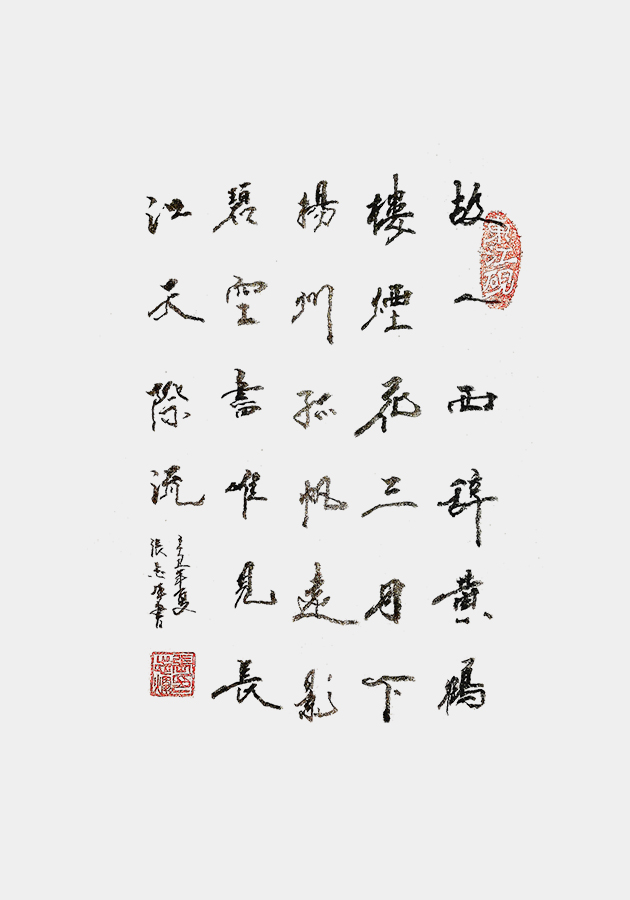 故人西辭黃鶴
樓煙花三月下
揚州孤帆遠影
碧空盡唯見長
江天際流
辛丑年夏
張志 書